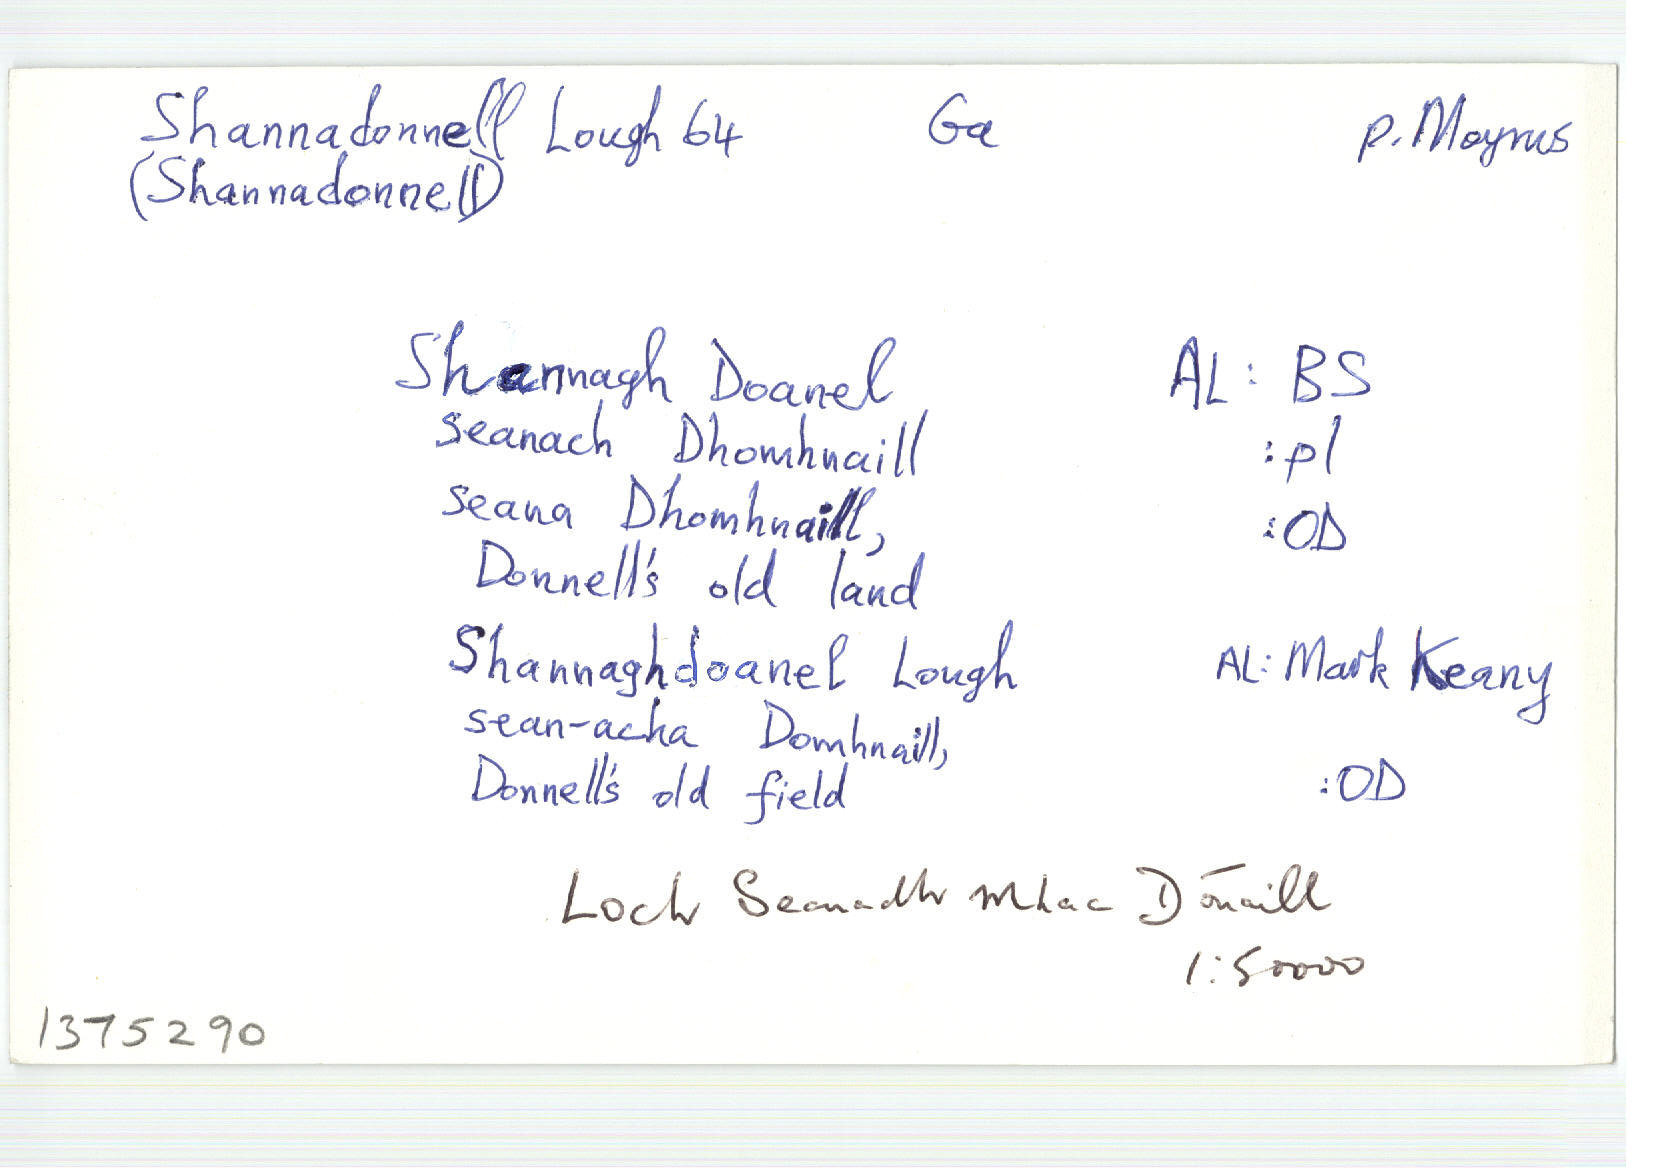 Shannadonnell Lough 64 Ga p. Moyrus
(Shannadonnell)
Shannagh Doanel AL: BS
seanach Dhomhnaill :pl
seana Dhomhnaill, :OD
Donnell's old land
Shannaghdoanel Lough AL: Mark Keany
sean-acha Domhnaill,
Donnell's old field :OD
Loch Seanadh Mhac Dónaill
1:50000
1375290